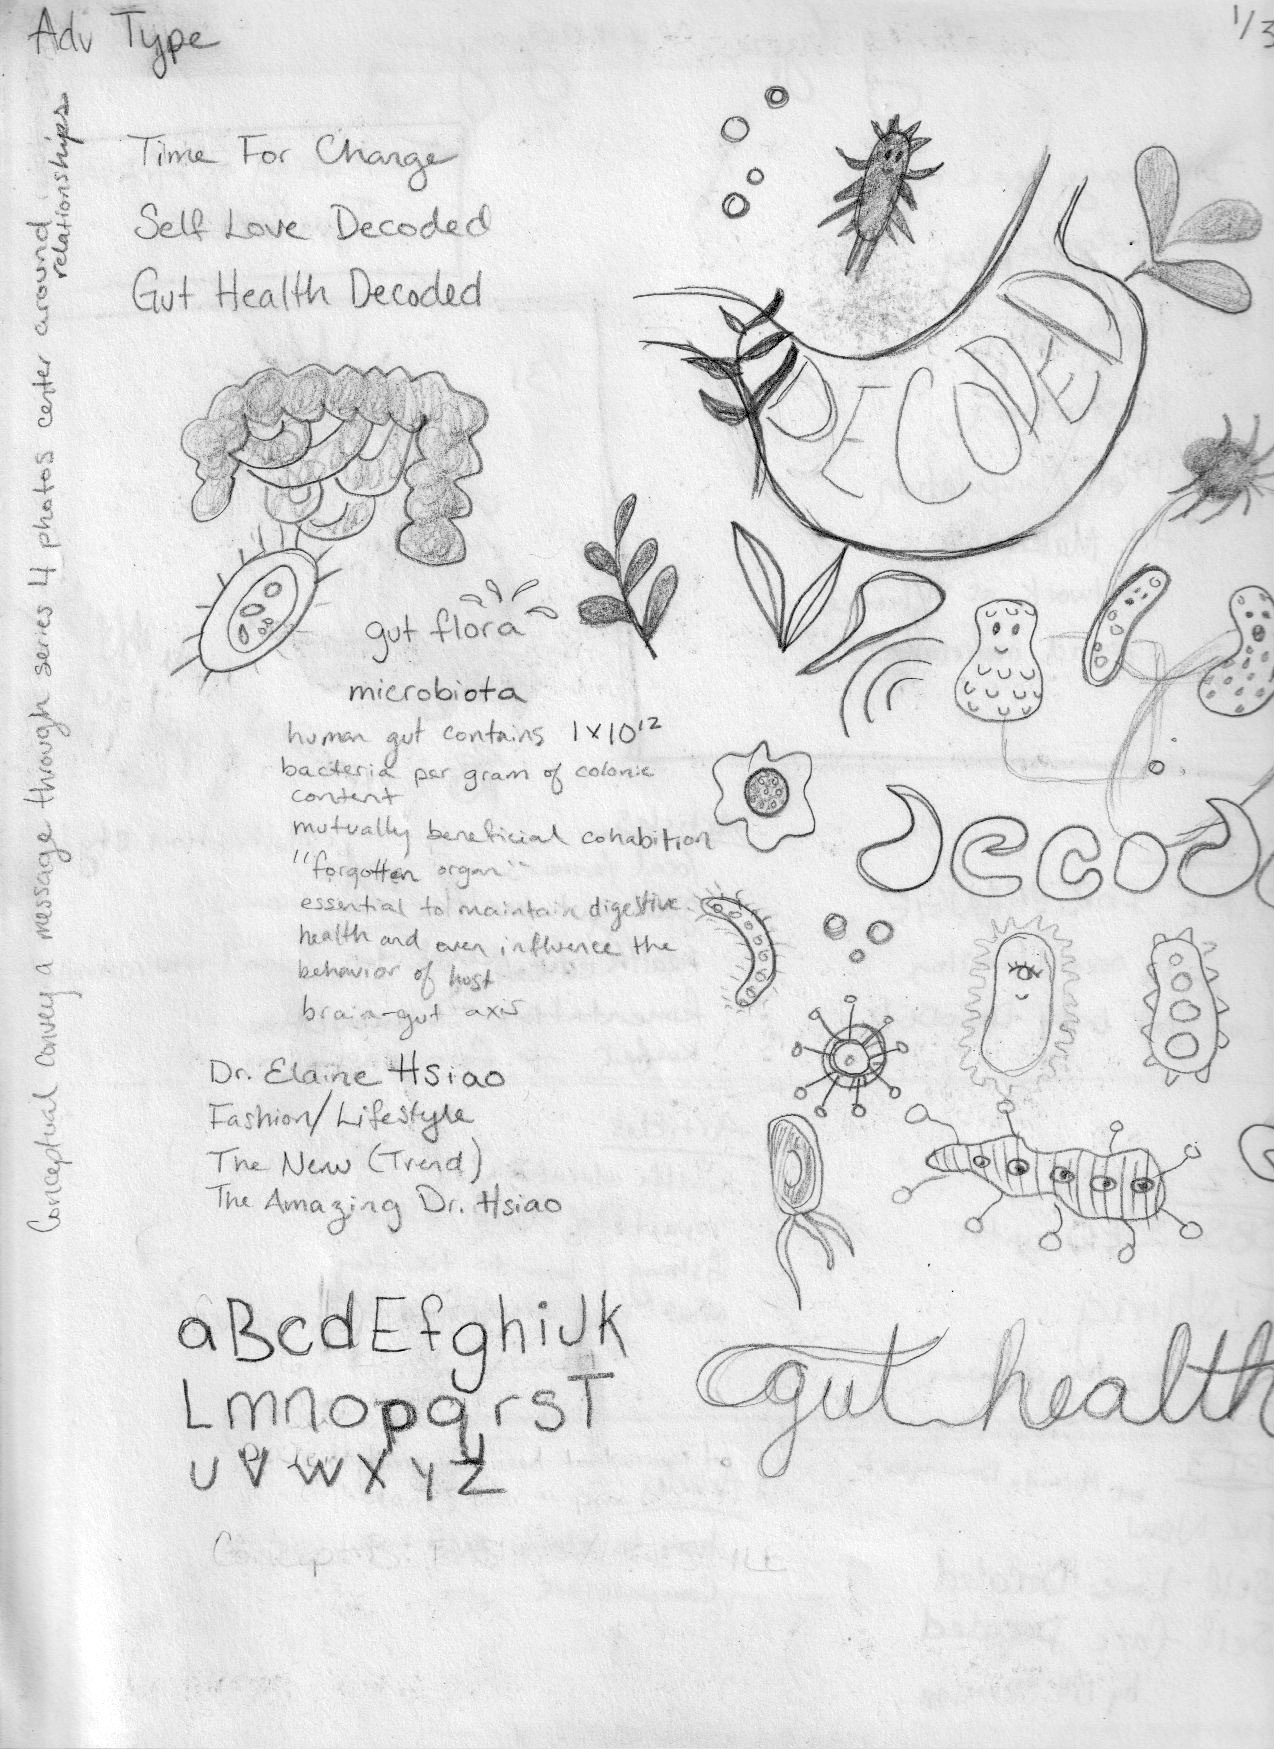 Adv Type
1/3
Conceptual convey a message through series 4 photos center around
relationships
Time For Change
Self Love Decoded
Gut Health Decoded
DECODED
gut flora
microbiota
human gut contains 1x10¹²
bacteria per gram of colonic
content
mutually beneficial cohabition
"forgotten organ"
essential to maintain digestive
health and even influence the
behavior of host
brain-gut axis
Decod
Dr. Elaine Hsiao
Fashion/Lifestyle
The New (Trend)
The Amazing Dr. Hsiao
aBcdEfghiJk
LmnopqrsT
UVWXYZ
gut health